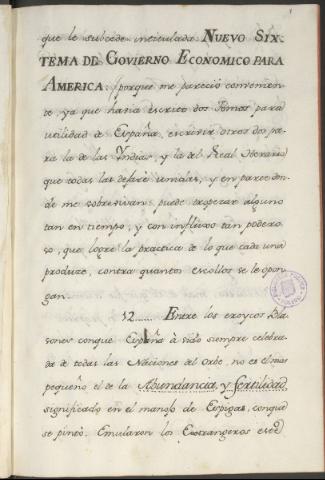 que le subcede intitulada Nuevo Six-
tema de Govierno Economico para
America: porque me pareció convenien-
te, ya que havia escrito dos Tomos para
utilidad de España, escrivir otros dos pa-
ra la de las Yndias, y la del Real Herario
que todas las dejaré unidas, y en parte don-
de me sobrevivan: puede tropezar alguno
tan en tiempo, y con influxo tan podero-
so, que logre la practica de lo que cada una
produze, contra quantos escollos se le opon-
gan.
12...... Entre los eroycos Bla-
sones conque España à sido siempre celebra-
da de todas las Naciones del Orbe, no es el mas
pequeño el de la Abundancia, y fertilidad,
significado en el manojo de Espigas, conque
se pintó. Emularon los Extrangeros este